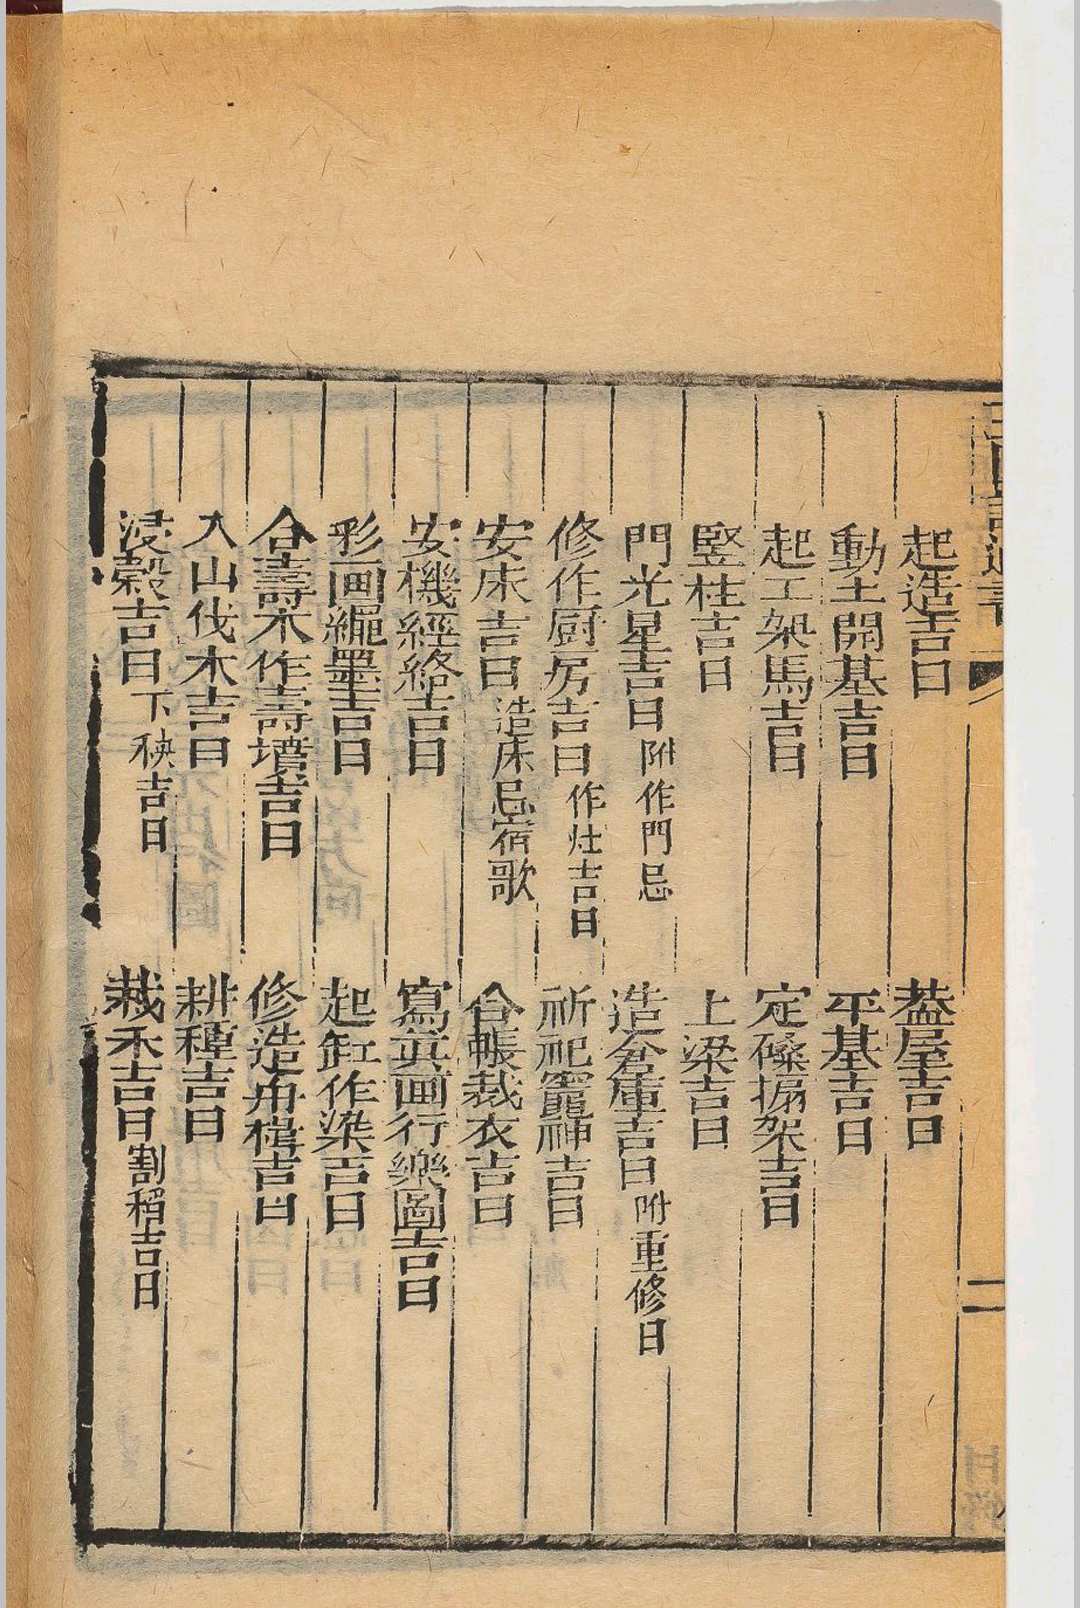 起造吉日　葢屋吉日
動土開基吉日　平基吉日
起工架馬吉日　定磉搧架吉日
竪柱吉日　上梁吉日
門光星吉日　附作門忌　造倉庫吉日　附重修日
修作厨房吉日　作灶吉日　祈祀竈神吉日
安床吉日　造床忌宿歌　合帳裁衣吉日
安機經絡吉日　寫真画行樂圖吉日
彩画繩墨吉日　起缸作染吉日
合壽木作壽墳吉日　修造舟楫吉日
入山伐木吉日　耕種吉日
浸穀吉日　下秧吉日　栽禾吉日　割稻吉日